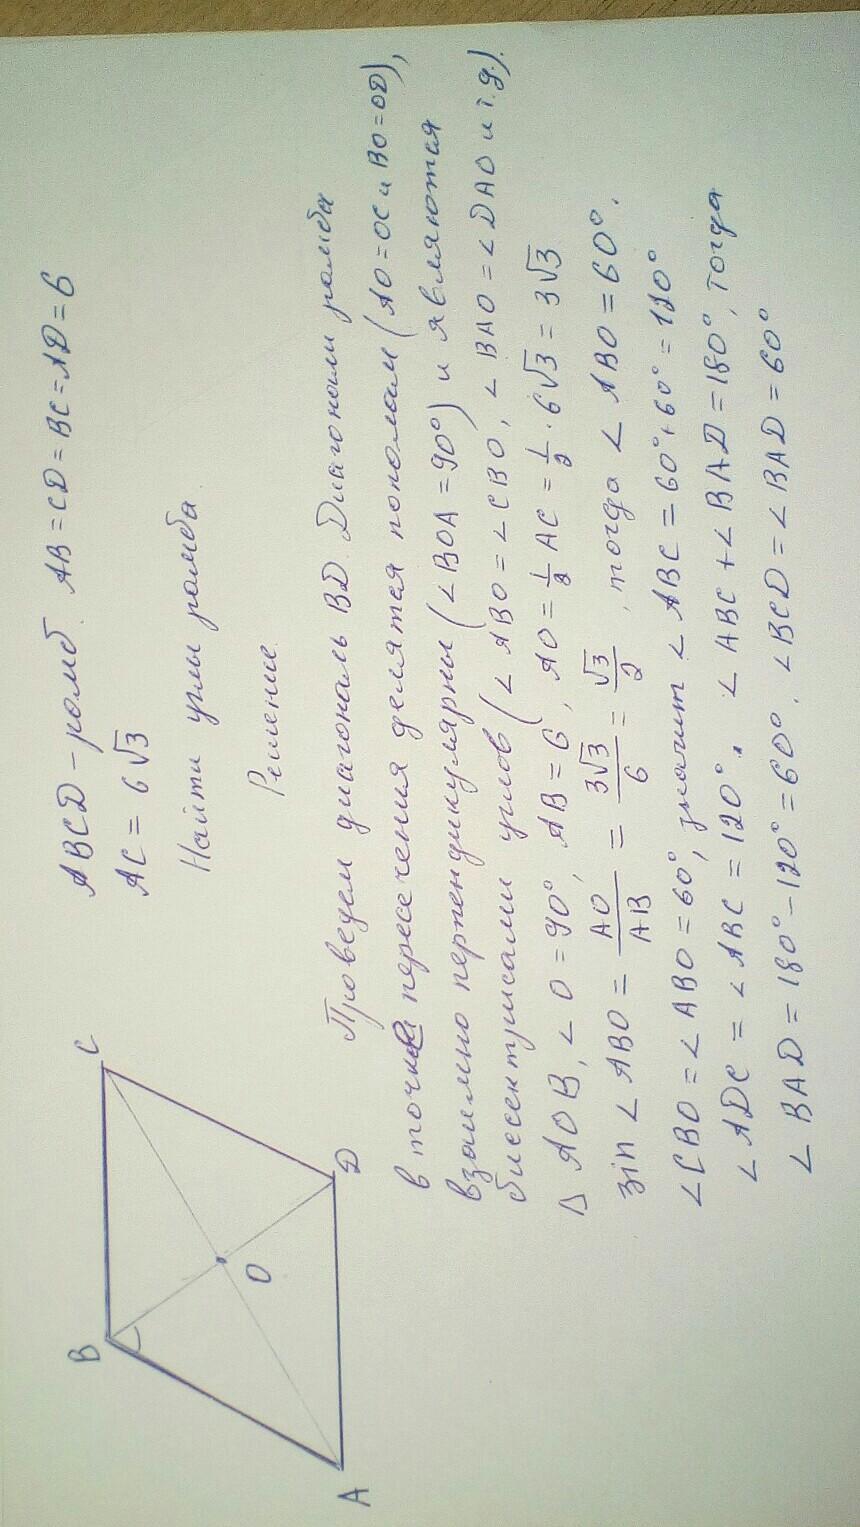 ABCD – ромб. AB = CD = BC = AD = 6
AC = 6√3
Найти углы ромба
Решение.
B
C
O
A
D
Проведем диагональ BD. Диагонали ромба
в точке пересечения делятся пополам (AO = OC и BO = OD),
взаимно перпендикулярны (∠BOA = 90°) и являются
биссектрисами углов (∠ABO = ∠CBO, ∠BAO = ∠DAO и т.д.).
Δ AOB, ∠O = 90°, AB = 6, AO = 1/2 AC = 1/2 · 6√3 = 3√3
sin ∠ABO = AO/AB = 3√3/6 = √3/2, тогда ∠ABO = 60°.
∠CBO = ∠ABO = 60°, значит ∠ABC = 60° + 60° = 120°
∠ADC = ∠ABC = 120°. ∠ABC + ∠BAD = 180°, тогда
∠BAD = 180° – 120° = 60°. ∠BCD = ∠BAD = 60°